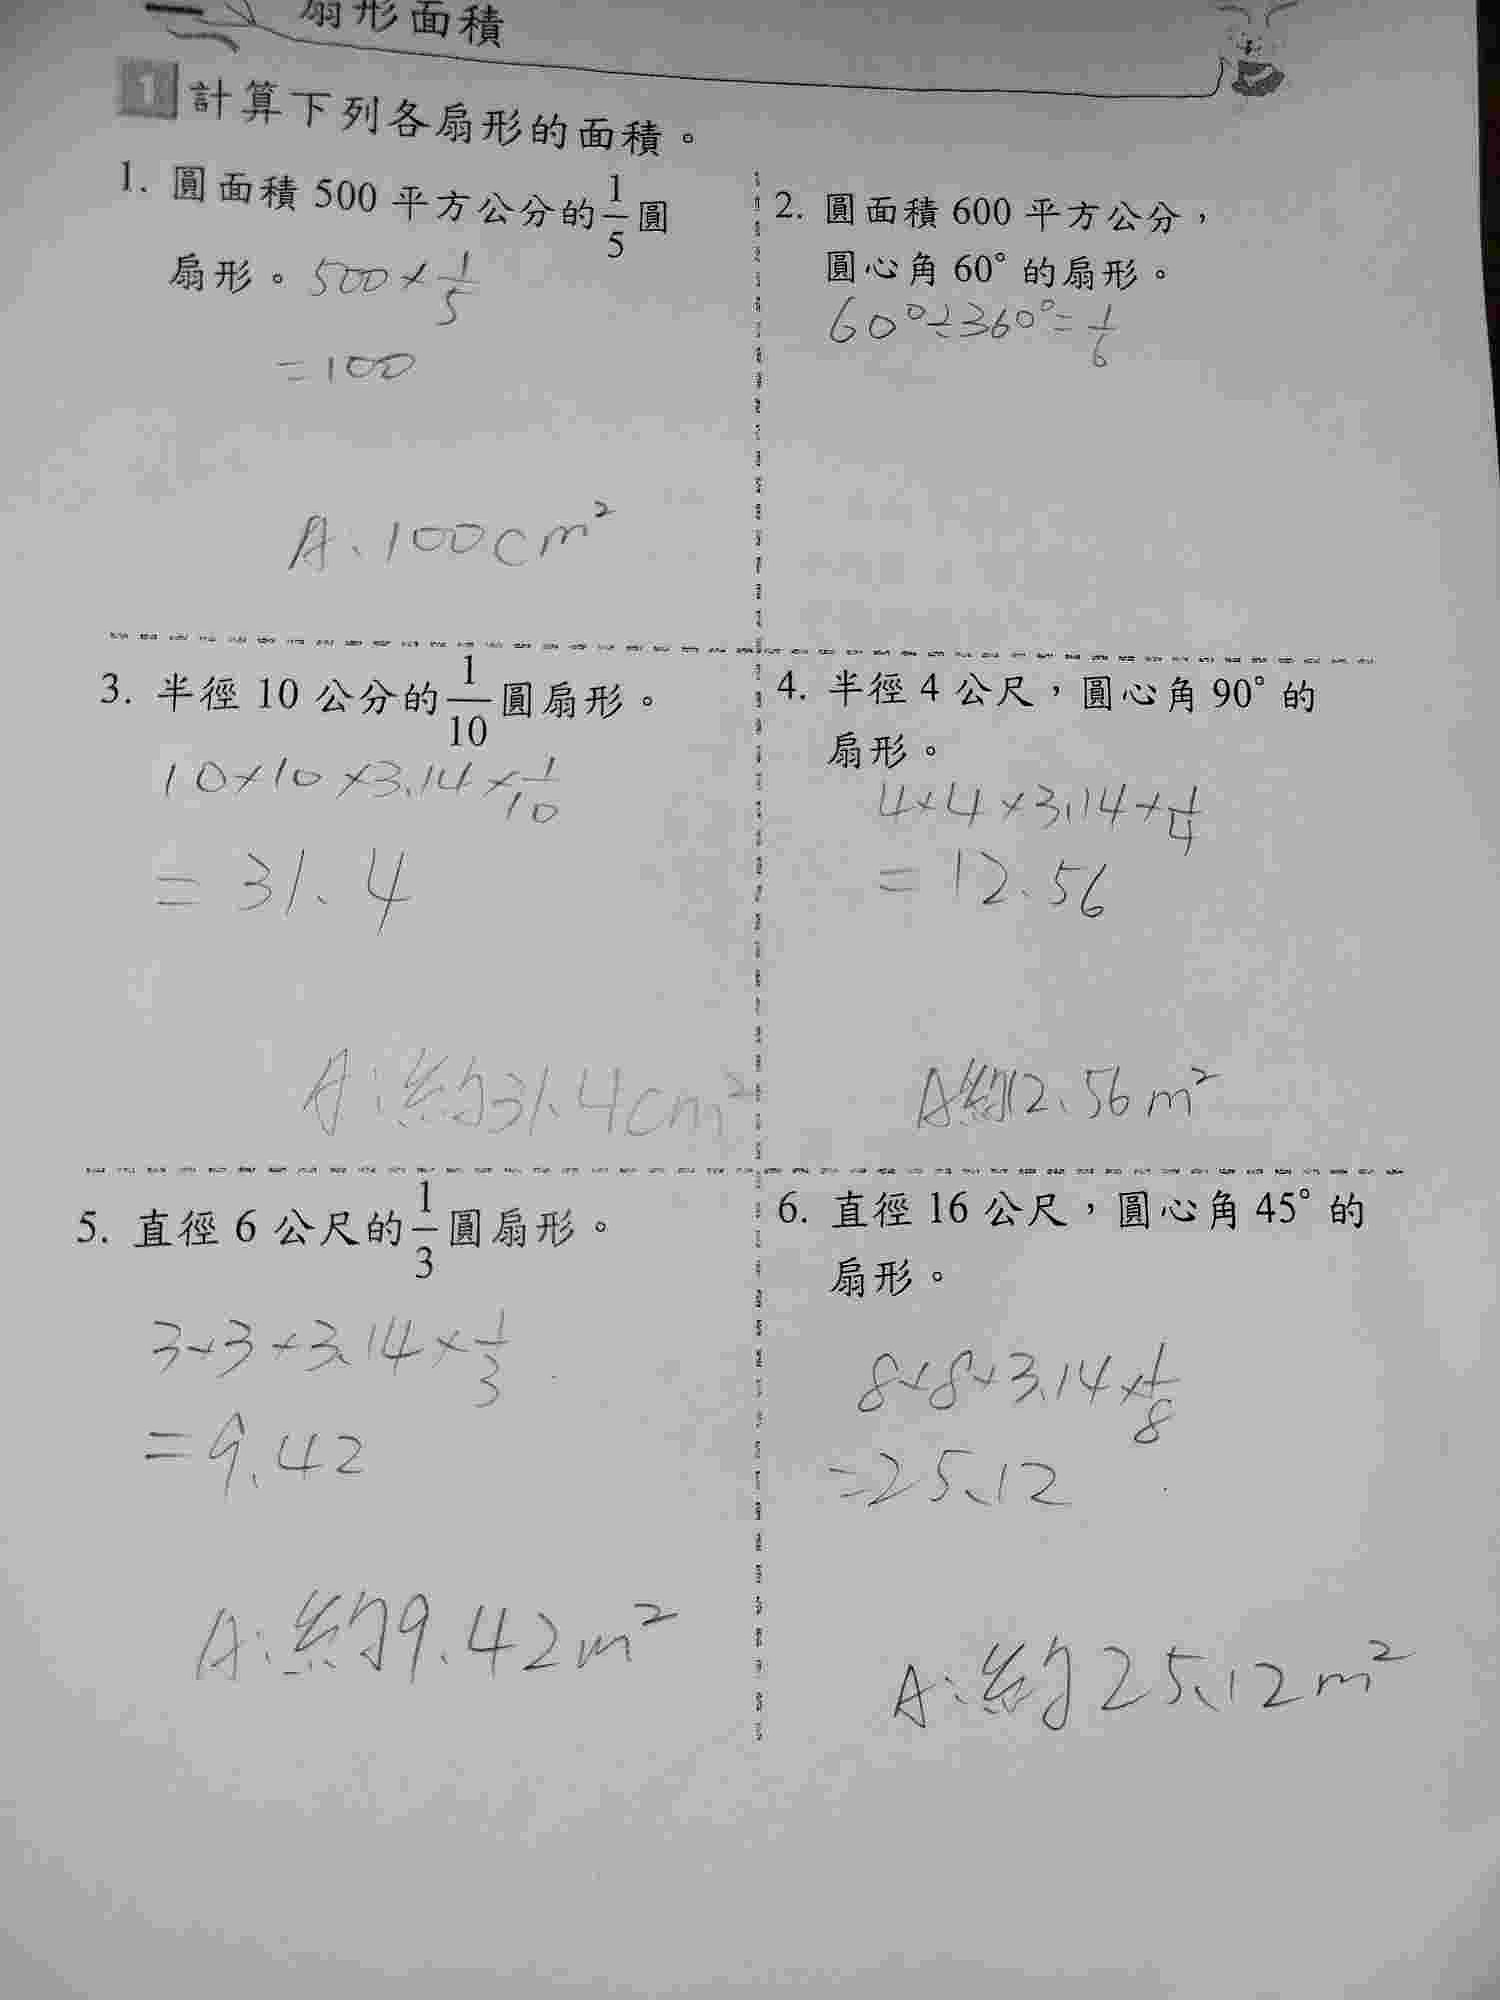 扇形面積
1 計算下列各扇形的面積。
1. 圓面積 500 平方公分的 1/5 圓
扇形。 500 × 1/5
= 100
A. 100cm²
2. 圓面積 600 平方公分，
圓心角 60° 的扇形。
60° ÷ 360° = 1/6
3. 半徑 10 公分的 1/10 圓扇形。
10 × 10 × 3.14 × 1/10
= 31.4
A: 約31.4cm²
4. 半徑 4 公尺，圓心角 90° 的
扇形。
4 × 4 × 3.14 × 1/4
= 12.56
A 約12.56m²
5. 直徑 6 公尺的 1/3 圓扇形。
3 × 3 × 3.14 × 1/3
= 9.42
A: 約9.42m²
6. 直徑 16 公尺，圓心角 45° 的
扇形。
8 × 8 × 3.14 × 1/8
= 25.12
A: 約25.12m²